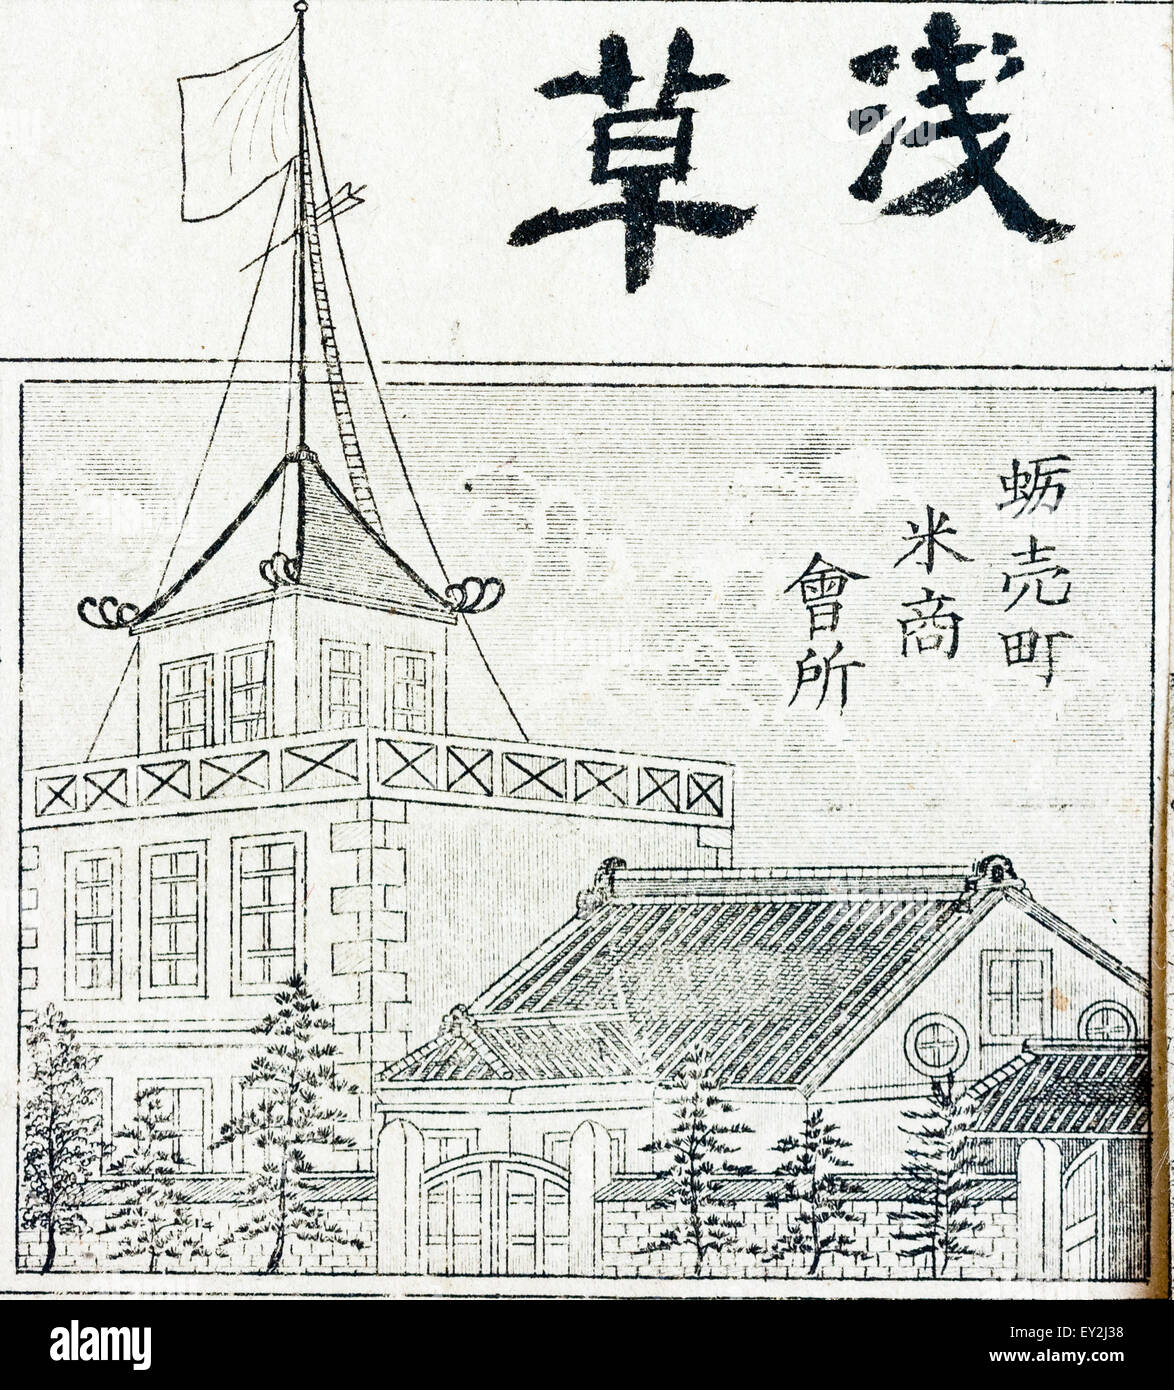 浅草
蛎売町
米商
會所
alamy
Image ID: EY2J38
www.alamy.com